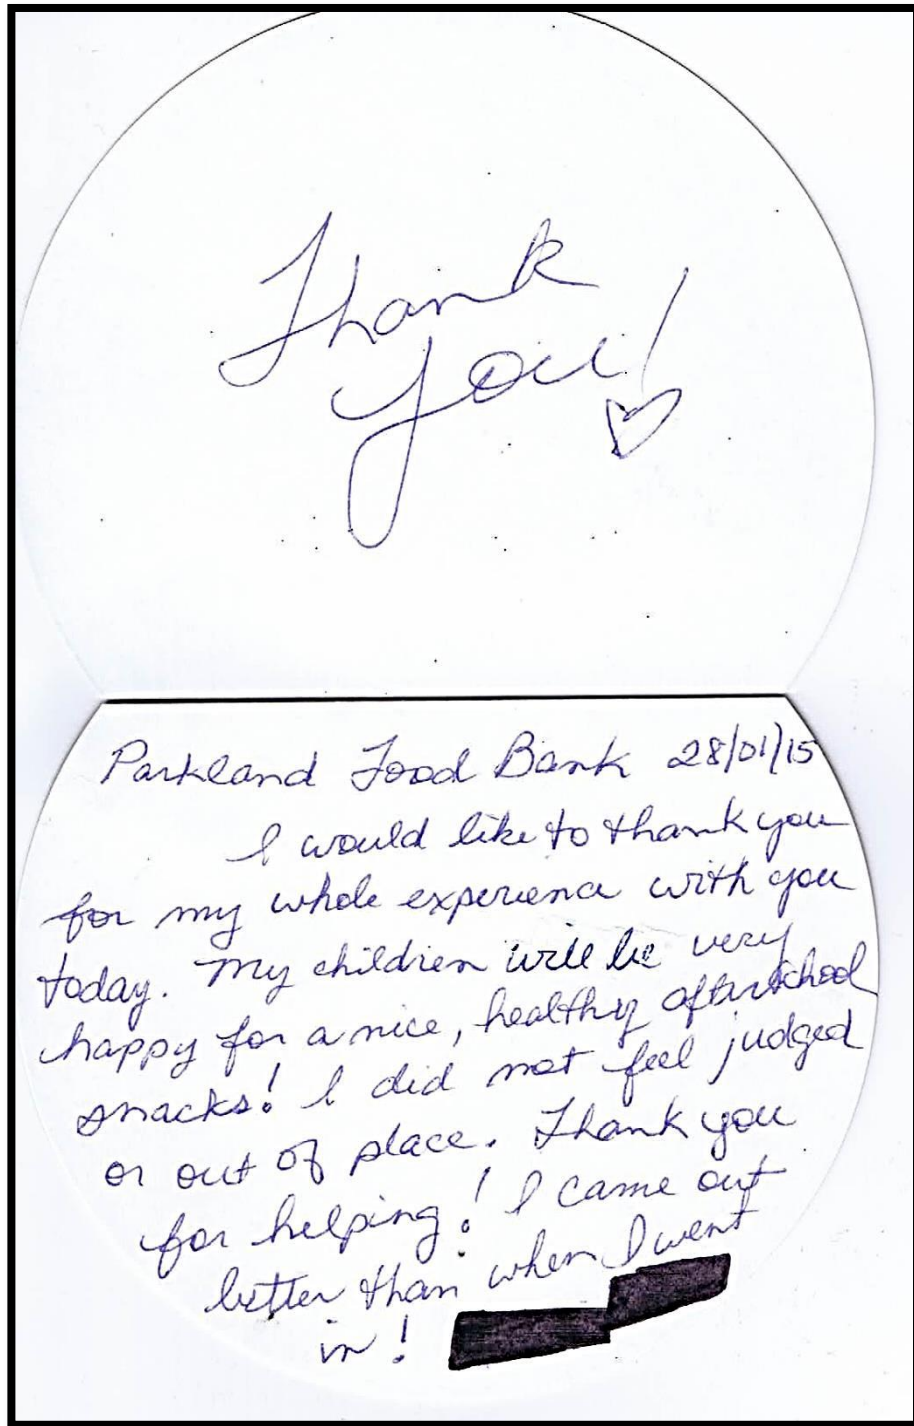 Thank
you!
Parkland Food Bank 28/01/15
I would like to thank you
for my whole experience with you
today. My children will be very
happy for a nice, healthy afterschool
snacks! I did not feel judged
or out of place. Thank you
for helping! I came out
better than when I went
in!